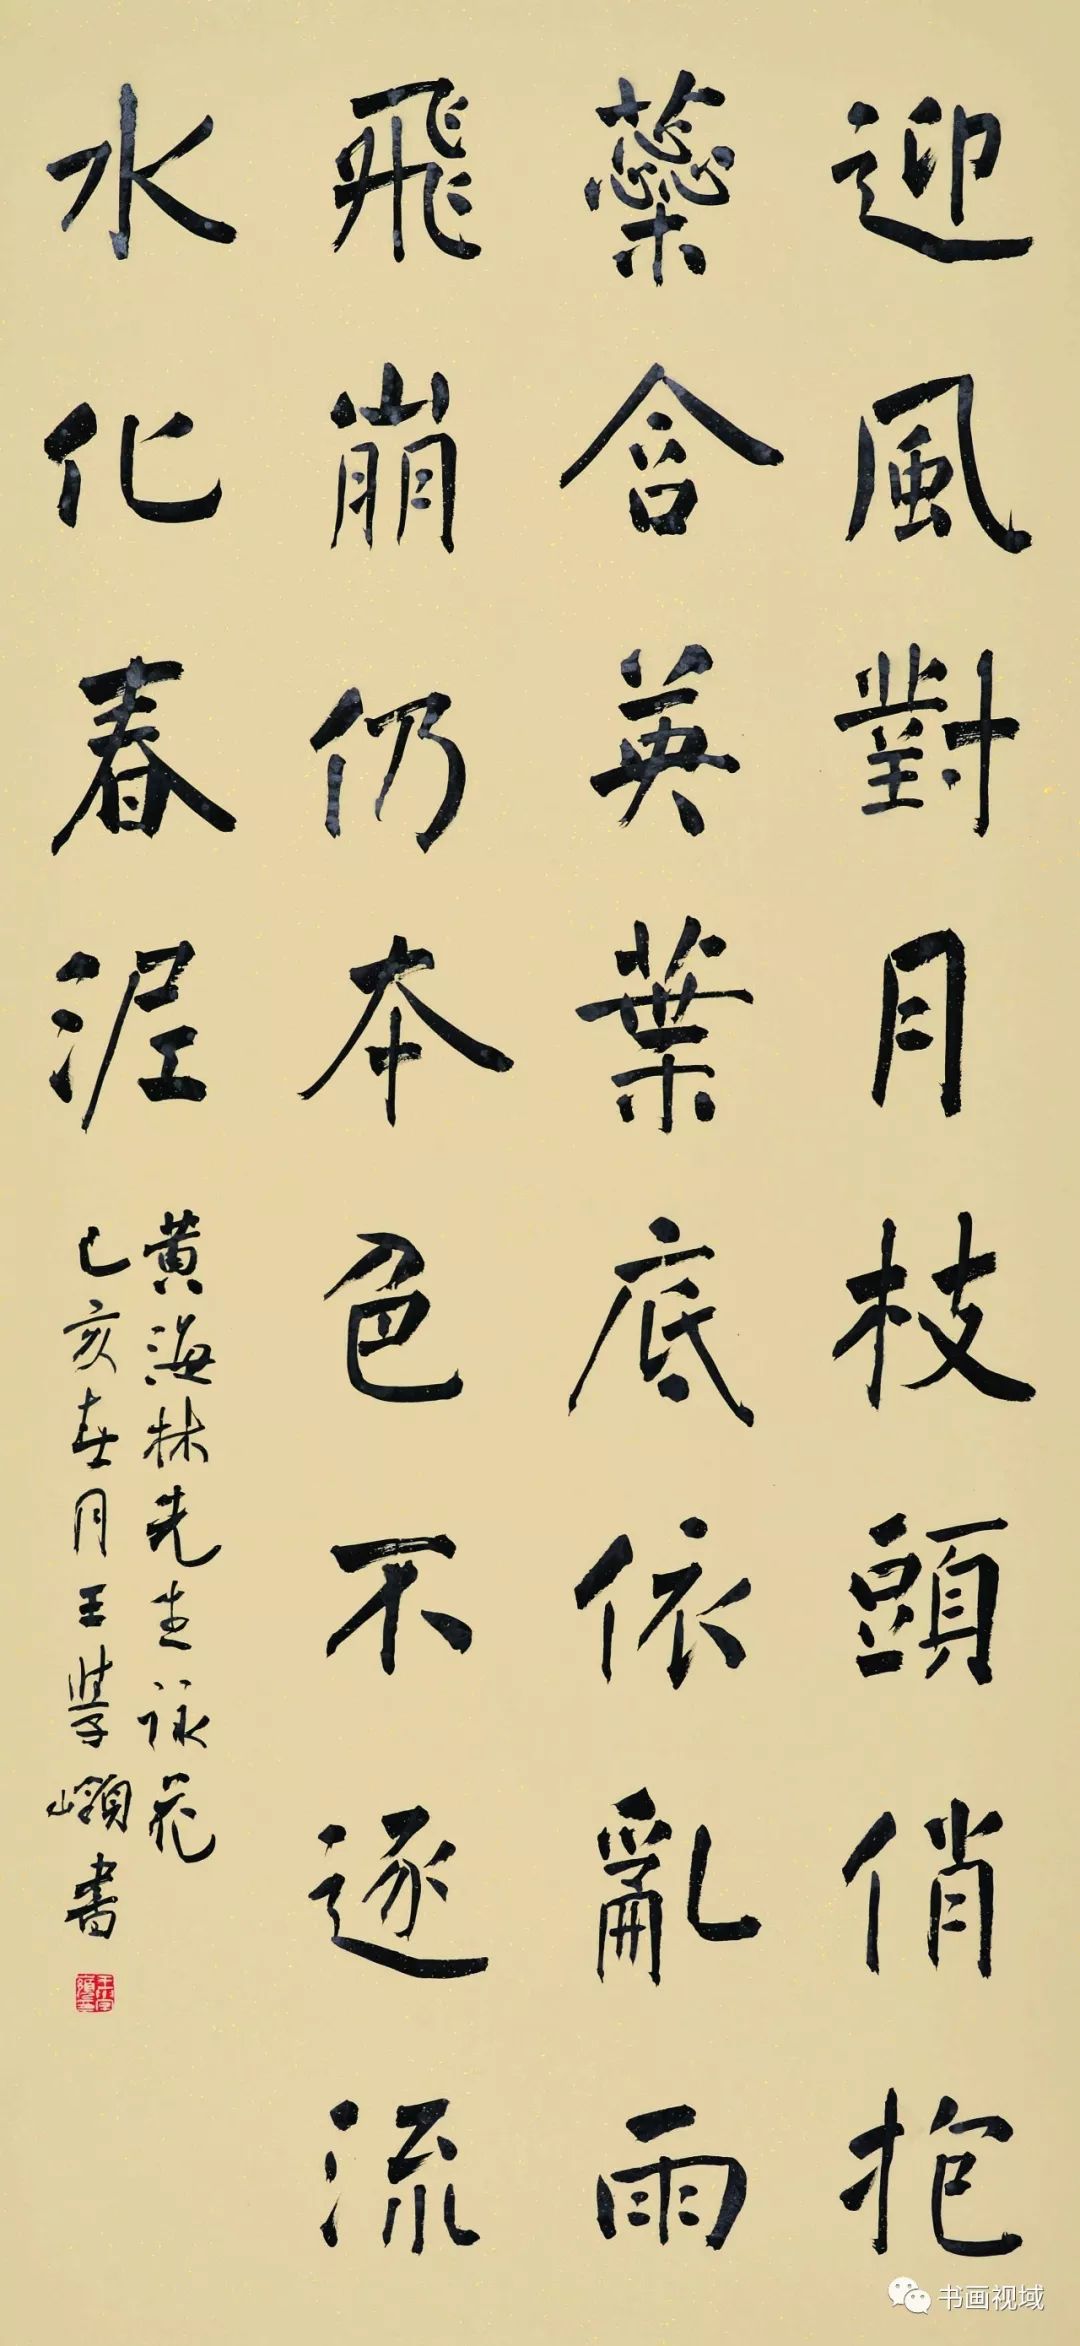 迎風對月枝頭俏抱
蘂含英葉底依亂雨
飛崩仍本色不逐流
水化春泥
黄海林先生詠花
己亥春月王學嶺書
书画视域